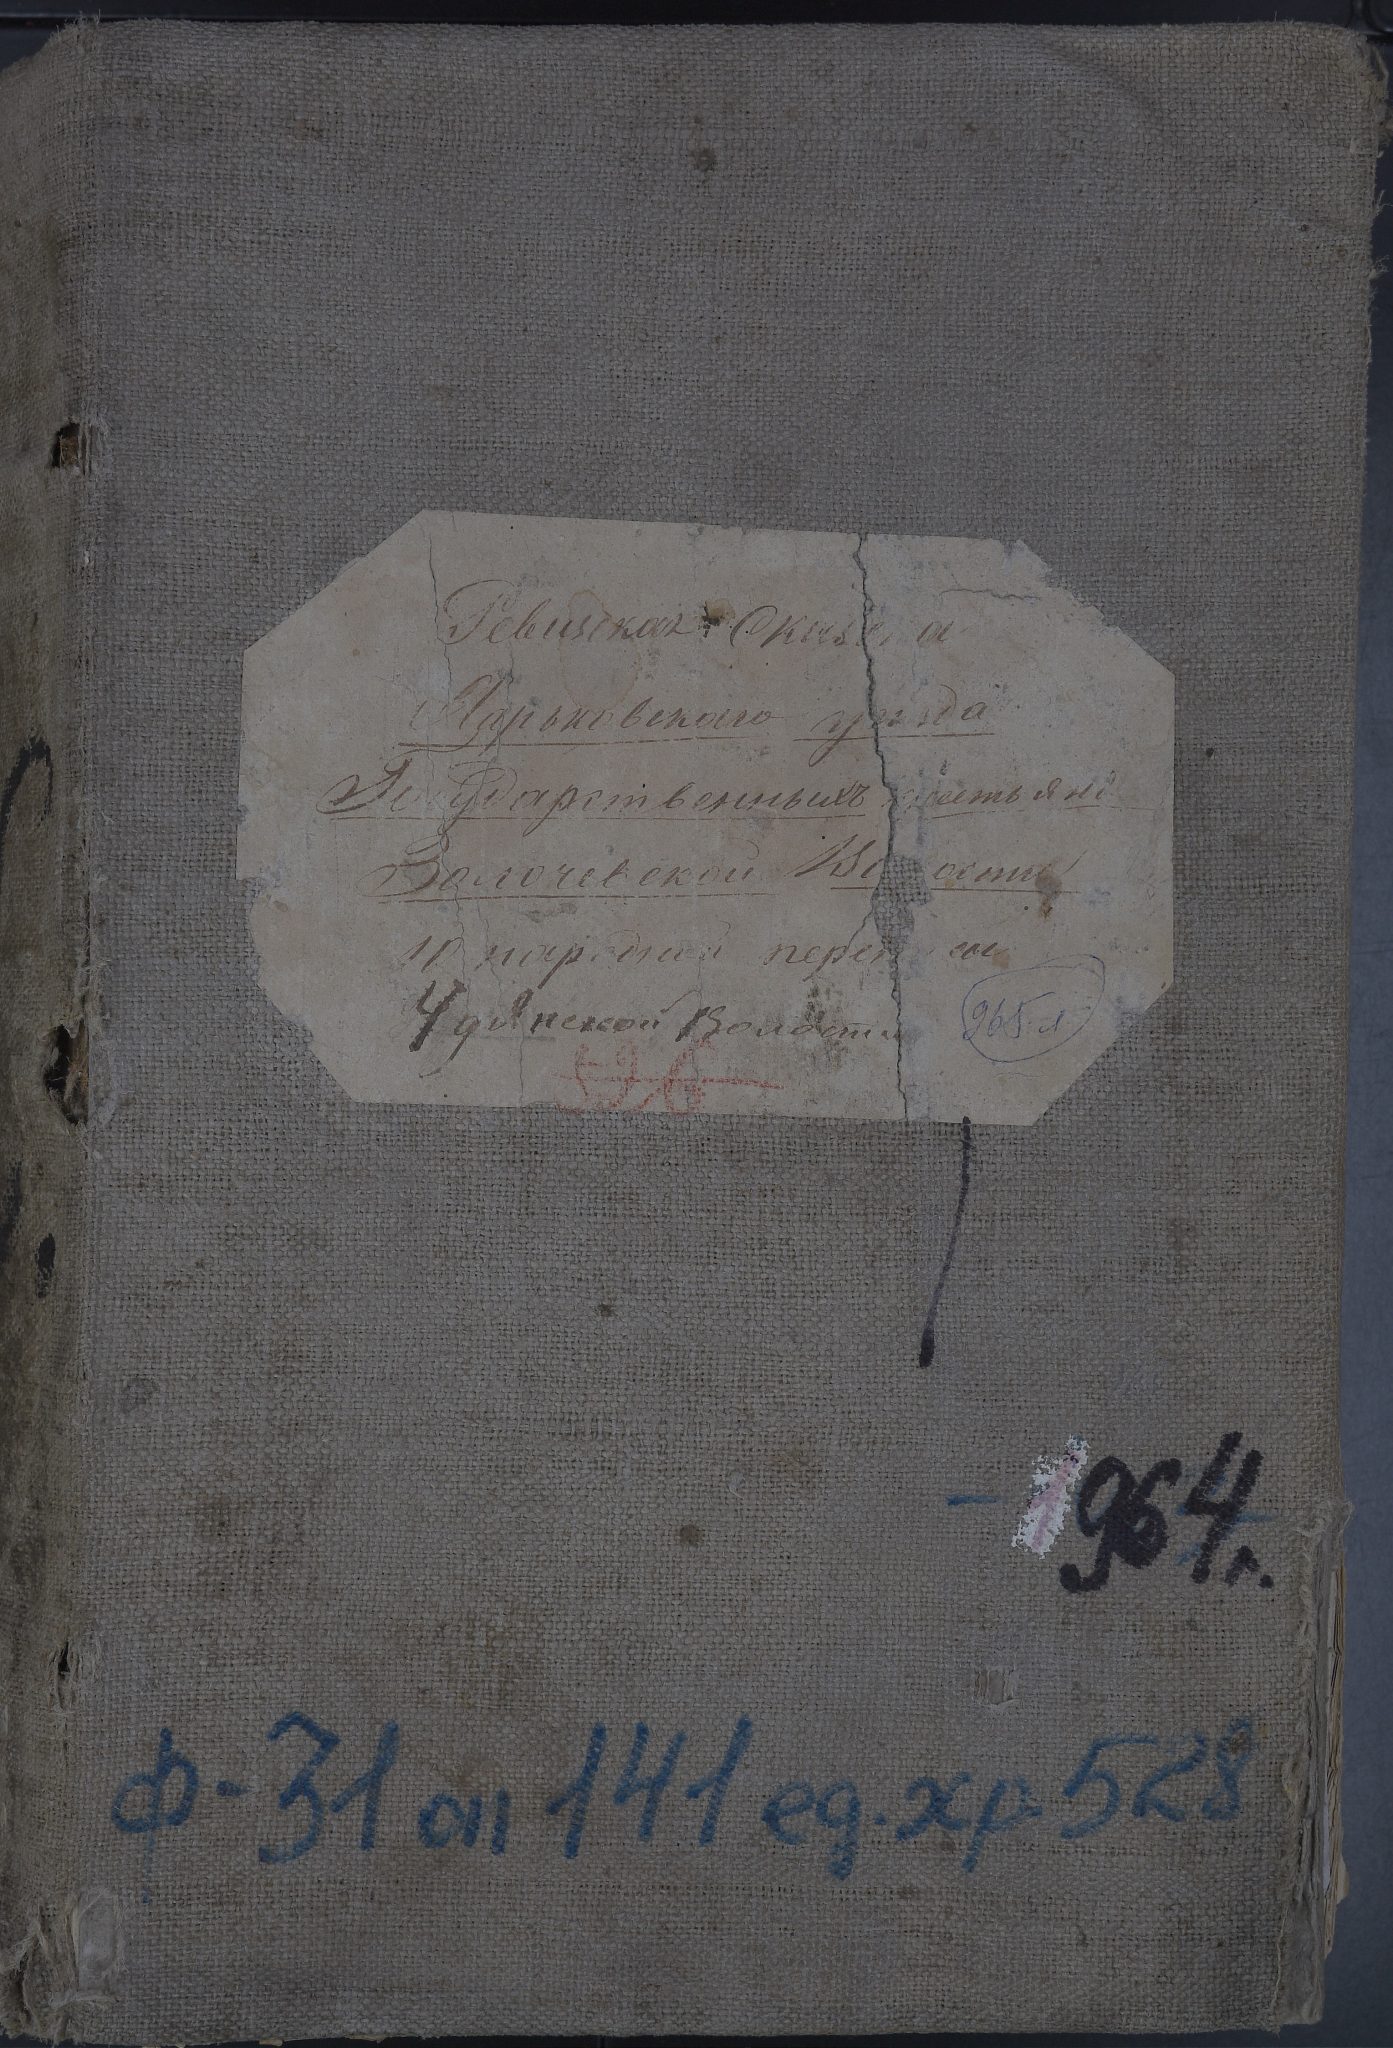 Ревизская Сказка
Харьковского уезда
Государственныхъ крестьянъ
Золочевской Волости
10 народной переписи
Удянской Волости
265 л
526
964 г.
ф-31 оп 141 ед.хр 528